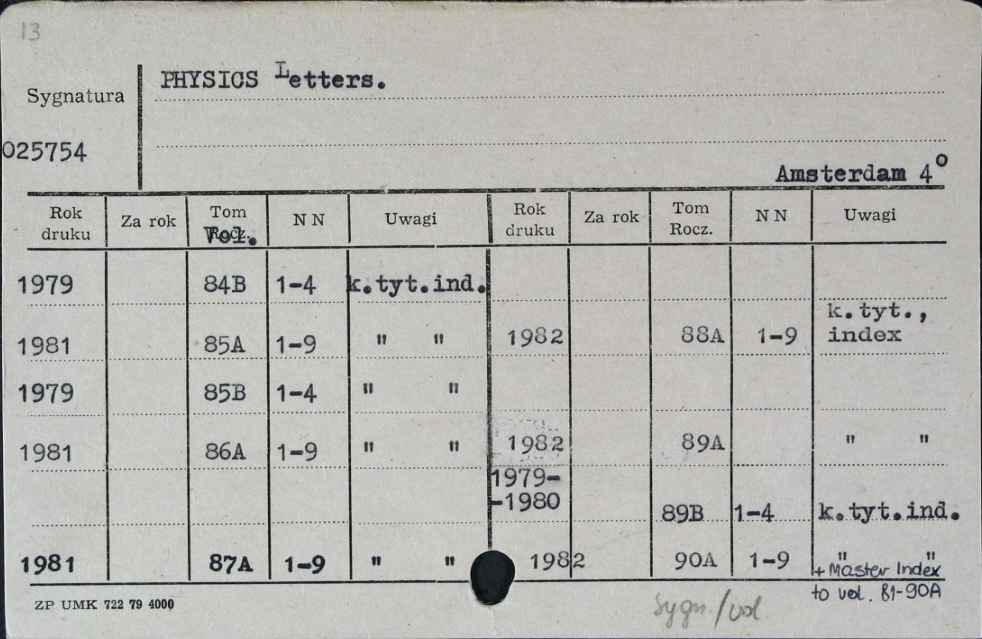 13
PHYSICS Letters.
Sygnatura
025754
Amsterdam 4°
Rok druku Za rok Tom Rocz. Vol. NN Uwagi Rok druku Za rok Tom Rocz. NN Uwagi
1979 84B 1-4 k.tyt.ind.
1981 85A 1-9 " " 1982 88A 1-9 k.tyt., index
1979 85B 1-4 " "
1981 86A 1-9 " " 1982 89A " "
1979-
-1980 89B 1-4 k.tyt.ind.
1981 87A 1-9 " " 1982 90A 1-9 " "
+ Master Index
to vol. 81-90A
ZP UMK 722 79 4000
sygn./vol